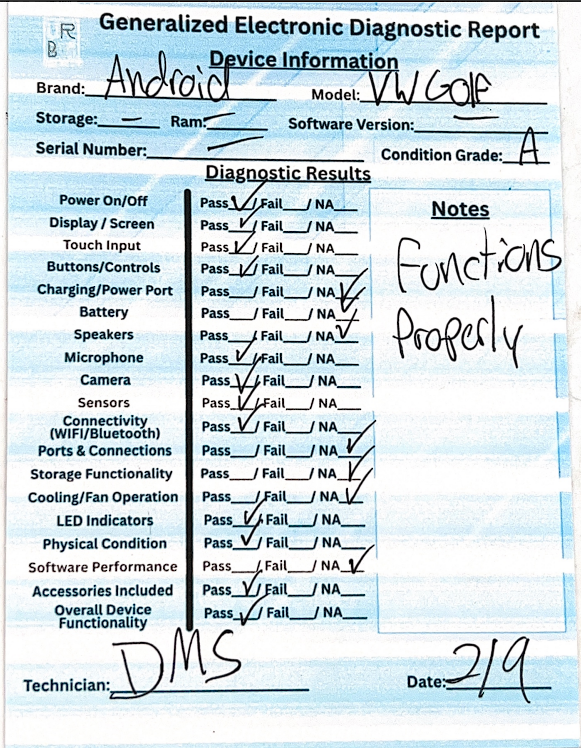 R
B
Generalized Electronic Diagnostic Report
Device Information
Brand: Android Model: VW Golf
Storage: — Ram: — Software Version: —
Serial Number: — Condition Grade: A
Diagnostic Results
Power On/Off Pass ✓/ Fail___/ NA___
Display / Screen Pass ✓/ Fail___/ NA___
Touch Input Pass ✓/ Fail___/ NA___
Buttons/Controls Pass ✓/ Fail___/ NA___
Charging/Power Port Pass___/ Fail___/ NA ✓
Battery Pass___/ Fail___/ NA ✓
Speakers Pass___/ Fail___/ NA ✓
Microphone Pass ✓/ Fail___/ NA___
Camera Pass ✓/ Fail___/ NA___
Sensors Pass ✓/ Fail___/ NA___
Connectivity
(WIFI/Bluetooth) Pass ✓/ Fail___/ NA___
Ports & Connections Pass___/ Fail___/ NA ✓
Storage Functionality Pass___/ Fail___/ NA ✓
Cooling/Fan Operation Pass___/ Fail___/ NA ✓
LED Indicators Pass ✓/ Fail___/ NA___
Physical Condition Pass ✓/ Fail___/ NA___
Software Performance Pass___/ Fail___/ NA ✓
Accessories Included Pass ✓/ Fail___/ NA___
Overall Device
Functionality Pass ✓/ Fail___/ NA___
Notes
Functions
Properly
Technician: DMS Date: 2/9